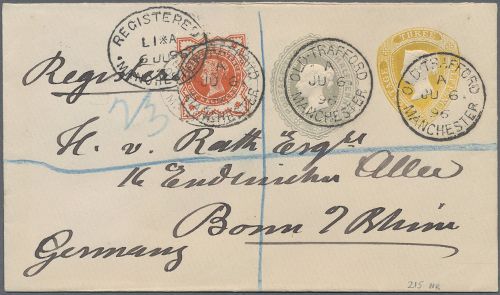 REGISTERED
LIXA
6 JU 96
MANCHESTER
OLD TRAFFORD
A
JU 6
96
MANCHESTER
OLD TRAFFORD
A
JU 6
96
MANCHESTER
THREE
Registered
23
H. v. Rath Esqre
16 Endenicher Allee
Bonn / Rhine
Germany
215 HK